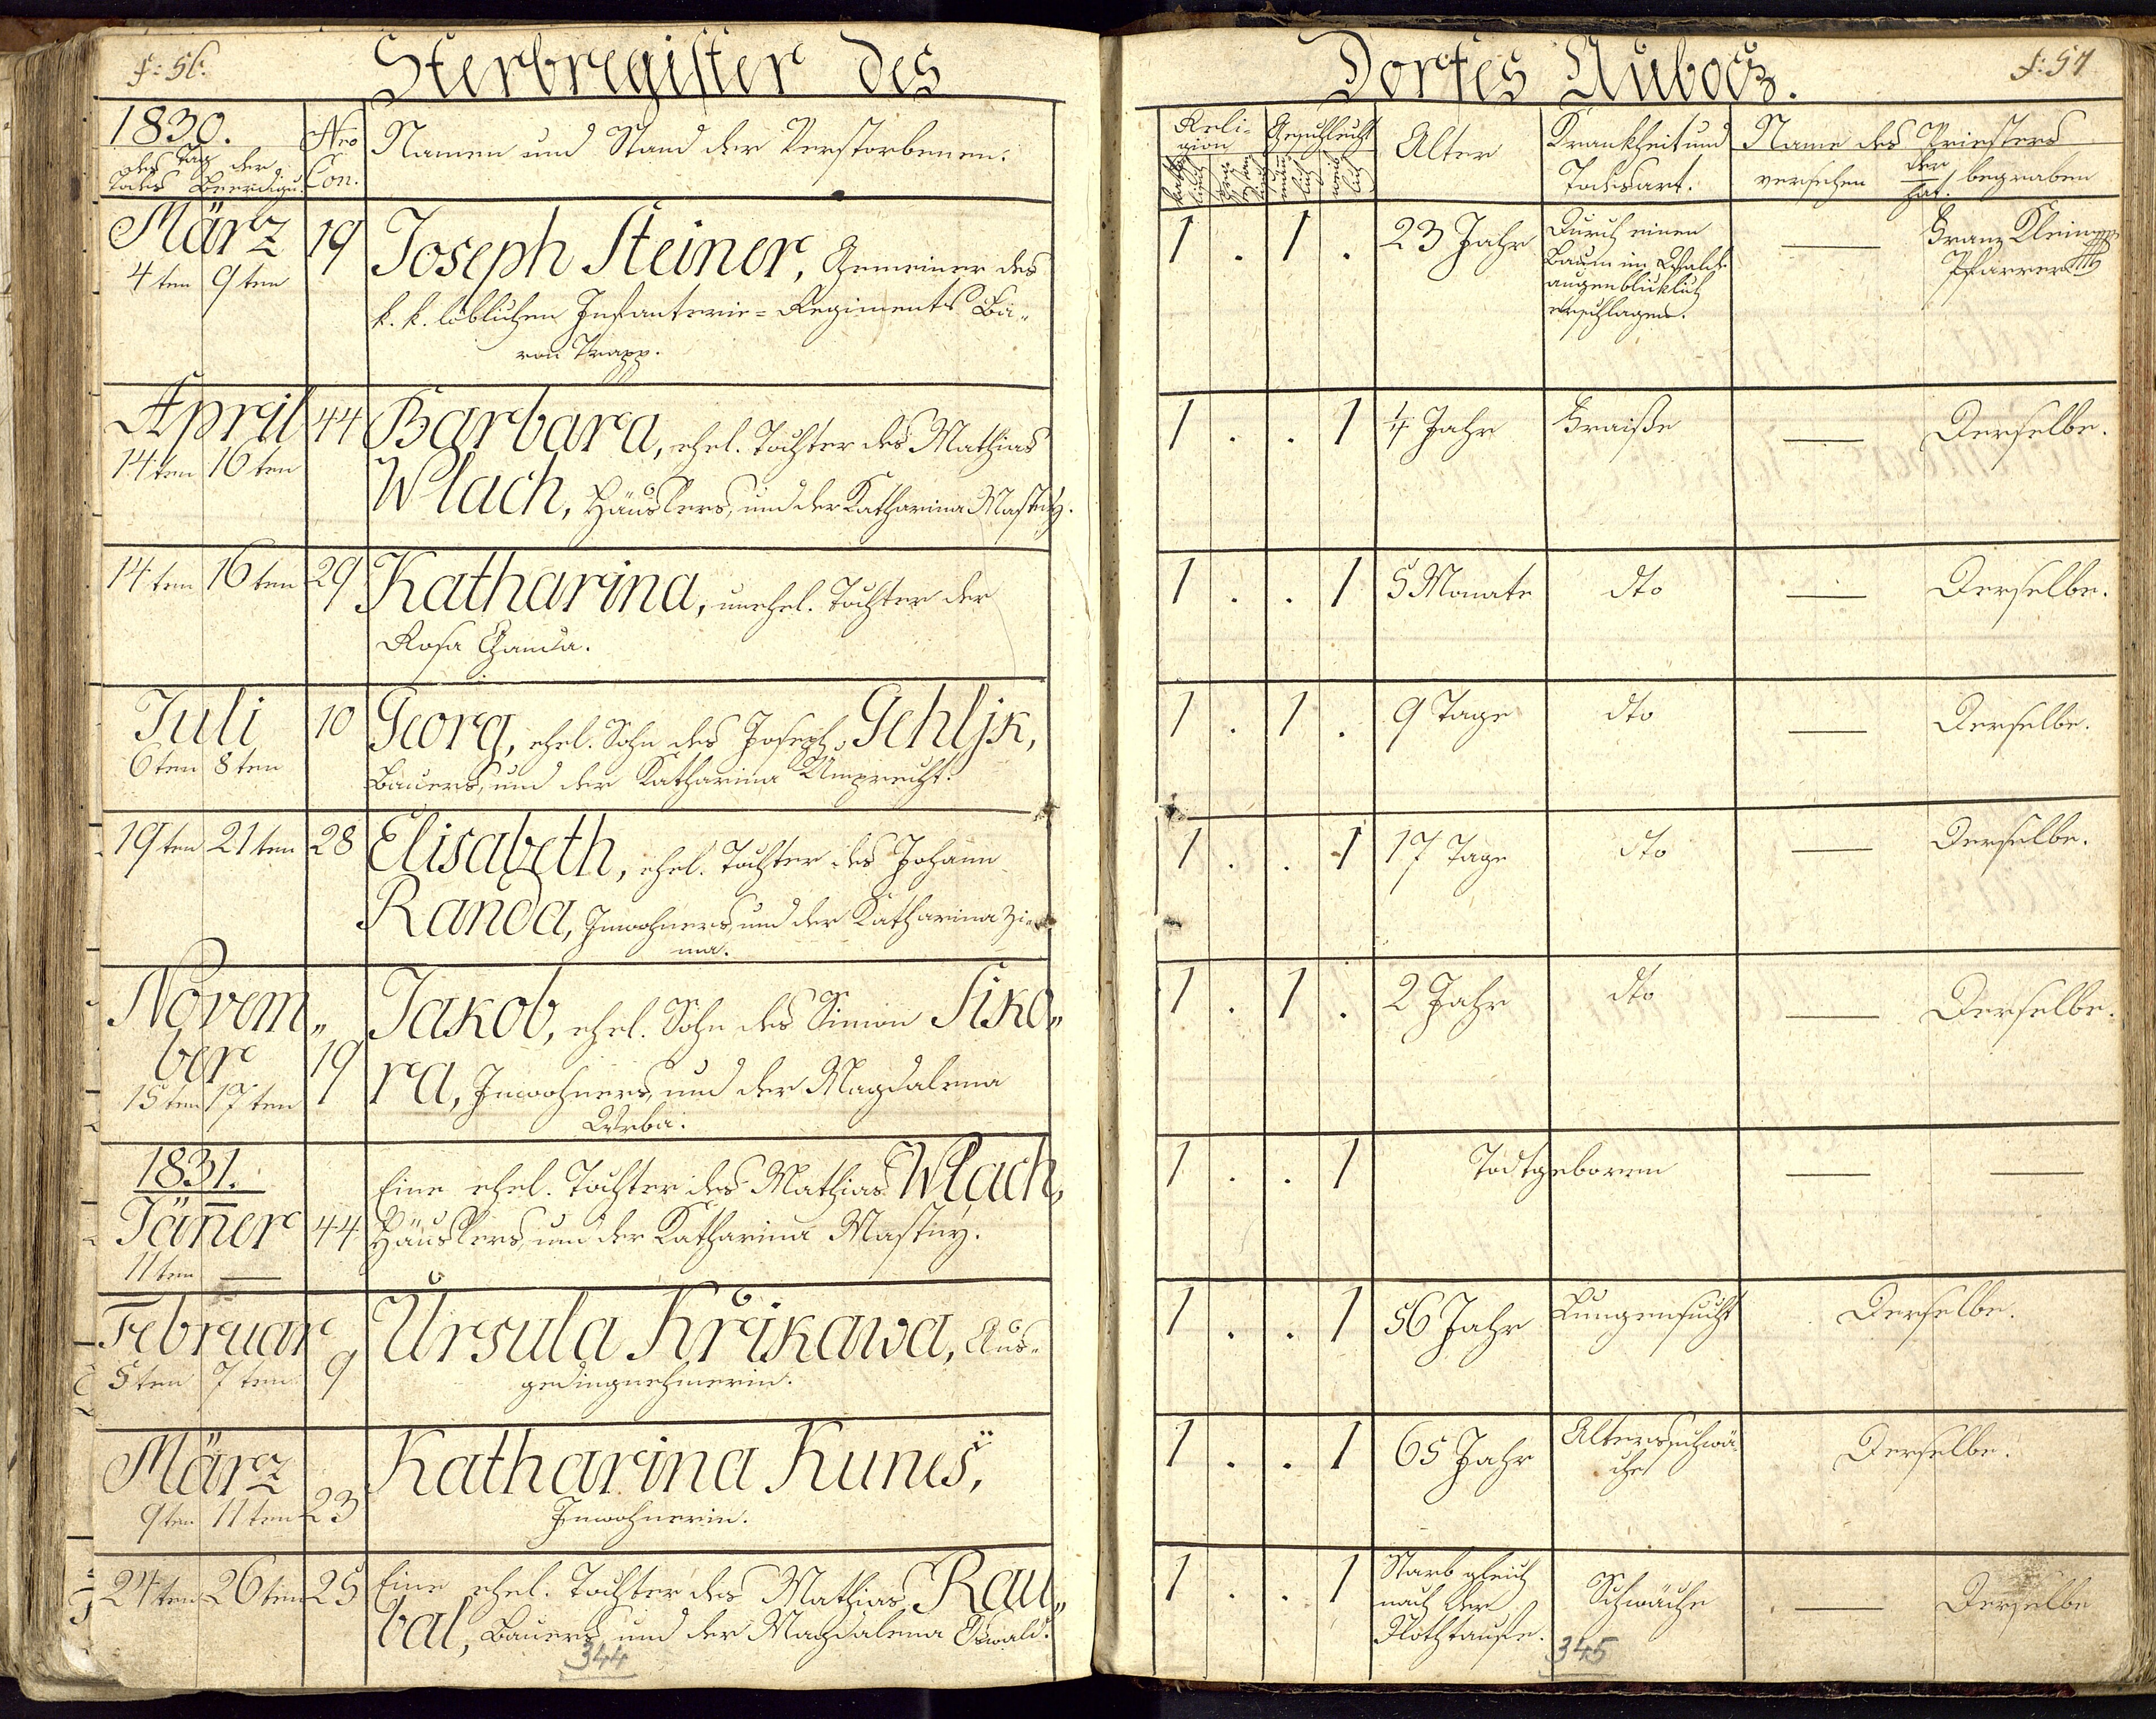 f: 56.
Sterbregister des
1830.
Tag
des der
Todes Beerdigu.
Nro
Con.
Namen und Stand der Verstorbenen.
März
4ten 9ten
19
Joseph Steiner, Gemeiner des
k. k. löblichen Infanterie=Regiments Ba„
ron Trapp.
April
14ten 16ten
44
Barbara, ehel. Tochter des Mathias
Wlach, Häuslers, und der Katharina Mastny.
14ten 16ten 29
Katharina, unehel. Tochter der
Rosa
Juli
6ten 8ten
10
Georg, ehel. Sohn des Joseph Gehljk,
Bauers, und der Katharina Umprecht.
19ten 21ten 28
Elisabeth, ehel. Tochter des Johann
Randa, Inwohners, und der Katharina Zi-
ma.
Novem„
ber
15ten 17ten
19
Jakob, ehel. Sohn des Simon Siko„
ra, Inwohners, und der Magdalena
Wrba.
1831.
Jäner
11ten —
44
Eine ehel. Tochter des Mathias Wlach,
Häuslers, und der Katharina Mastny.
Februar
5ten 7ten
9
Ursula Křikawa, Aus-
gedingnehmerin.
März
9ten 11ten 23
Katharina Kuneš,
Inwohnerin.
24ten 26ten 25
Eine ehel. Tochter des Mathias Rau„
bal, Bauers, und der Magdalena Oswald.
344
Dorfes Aubocz.
f: 57
Reli-
gion
Geschlecht
Alter
Krankheit und
Todesart.
Name des Priesters
versehen der hat. begraben
katho
lisch
männ
lich
weib
lich
1 . 1 . 23 Jahr
Durch einen
Baum im Walde
augenbliklich
erschlagen.
—
Franz Klein
Pfarrer
1 . . 1 4 Jahr Fraiße — Derselbe.
1 . . 1 5 Monate dto — Derselbe.
1 . 1 . 9 Tage dto — Derselbe.
1 . . 1 17 Tage dto — Derselbe.
1 . 1 . 2 Jahr dto — Derselbe.
1 . . 1 Todtgeboren — —
1 . . 1 56 Jahr Lungensucht Derselbe.
1 . . 1 65 Jahr Altersschwä-
che
Derselbe.
1 . . 1 Starb gleich
nach der
Nothtaufe.
Schwäche — Derselbe
345